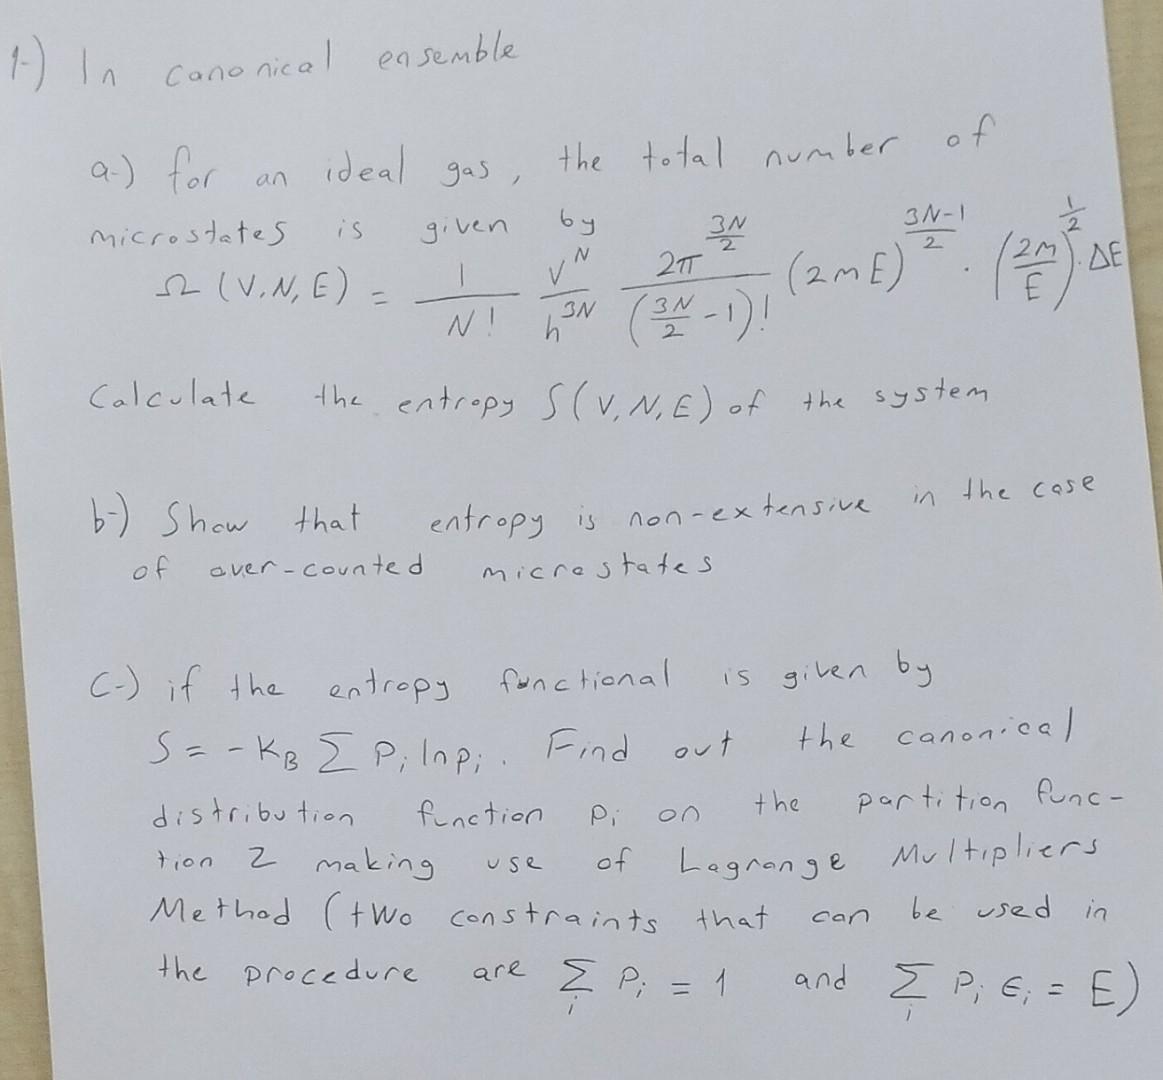 1-) In canonical ensemble
a-) for an ideal gas, the total number of
microstates is given by
Ω (V,N,E) = 1/N! V^N/h^3N 2π^(3N/2)/(3N/2 - 1)! (2mE)^((3N-1)/2) · (2m/E)^(1/2) · ΔE
Calculate the entropy S(V,N,E) of the system
b-) Show that entropy is non-extensive in the case
of over-counted microstates
C-) if the entropy functional is given by
S = - KB Σ Pi ln pi . Find out the canonical
distribution function Pi on the partition func-
tion Z making use of Lagrange Multipliers
Method (two constraints that can be used in
the procedure are Σi Pi = 1 and Σi Pi ϵi = E)